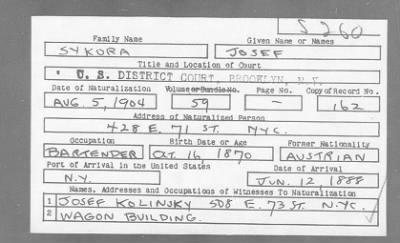 S260
Family Name Given Name or Names
SYKORA JOSEF
Title and Location of Court
U. S. DISTRICT COURT, BROOKLYN, N.Y.
Date of Naturalization Volume or Bundle No. Page No. Copy of Record No.
AUG. 5, 1904 59 — 162
Address of Naturalized Person
428 E. 71 ST. NYC.
Occupation Birth Date or Age Former Nationality
BARTENDER OCT. 16, 1870 AUSTRIAN
Port of Arrival in the United States Date of Arrival
N.Y. JUN. 12, 1888
Names, Addresses and Occupations of Witnesses To Naturalization
1 JOSEF KOLINSKY 508 E. 73 ST. N.Y.C.
2 WAGON BUILDING.